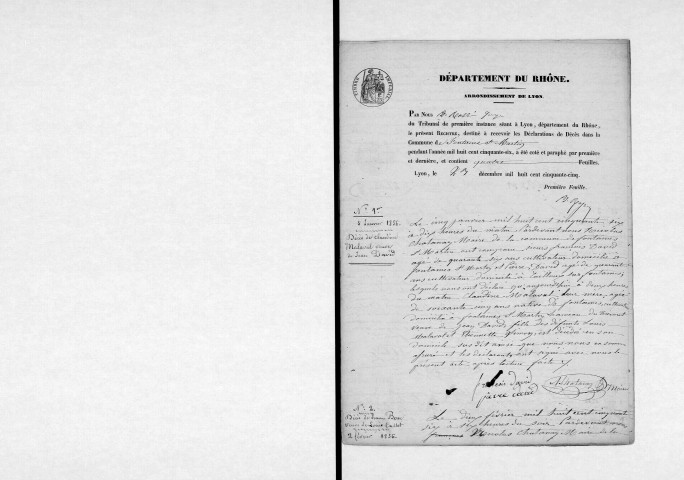 DÉPARTEMENT DU RHÔNE.
ARRONDISSEMENT DE LYON.
PAR NOUS
du Tribunal de première instance séant à Lyon, département du Rhône,
le présent REGISTRE, destiné à recevoir les Déclarations de Décès dans la
Commune de Fontaines St Martin
pendant l'année mil huit cent cinquante-six, a été coté et paraphé par première
et dernière, et contient quatre Feuilles.
Lyon, le 23 décembre mil huit cent cinquante-cinq.
Première Feuille.
N° 1er
5 Janvier 1856.
Décès de Claudine
Malaval veuve
de Jean David
Le cinq janvier mil huit cent cinquante six
à dix heures du matin Pardevant nous Nicolas
Chatanay Maire de la commune de fontaines
St Martin sont comparus François David
agé de quarante six ans cultivateur domicilié à
fontaines St Martin et Pierre David agé de quarante
ans cultivateur domicilié à sur fontaines
lesquels nous ont déclaré qu'aujourd'hui à deux heures
du matin Claudine Malaval leur mère, agée
de soixante cinq ans native de fontaines
domiciliée à fontaines St Martin
veuve de Jean David, fille des défunts Louis
Malaval et est décédée en son
domicile sus dit ainsi que nous nous en sommes
assuré et les déclarants ont signé avec nous le
présent acte après lecture faite
françois david
pierre david
N. Chatanay Maire
N° 2.
Décès de
veuve de Louis
2 février 1856.
Le deux février mil huit cent cinquante
six à heures du soir Pardevant nous
Nicolas Chatanay Maire de la